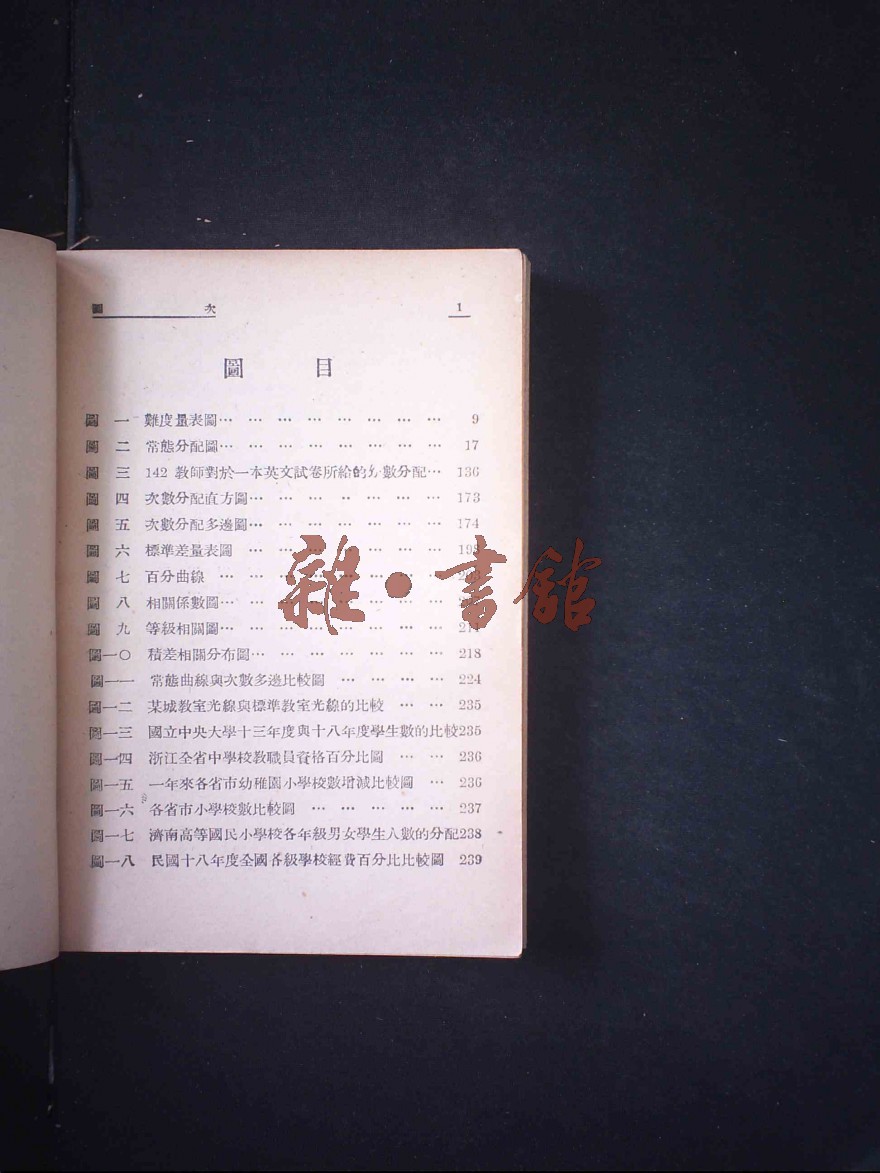 圖 次 1
圖 目
圖 一 難度量表圖… … … … … … … … 9
圖 二 常態分配圖… … … … … … … … 17
圖 三 142 教師對於一本英文試卷所給的分數分配… 136
圖 四 次數分配直方圖… … … … … … … 173
圖 五 次數分配多邊圖… … … … … … … 174
圖 六 標準差量表圖 … … … … … … …
圖 七 百分曲線 … … … … … … … …
圖 八 相關係數圖… … … … … … … …
圖 九 等級相關圖… … … … … … … …
圖一〇 積差相關分布圖… … … … … … … 218
圖一一 常態曲線與次數多邊比較圖 … … … … 224
圖一二 某城教室光線與標準教室光線的比較 … … 235
圖一三 國立中央大學十三年度與十八年度學生數的比較235
圖一四 浙江全省中學校教職員資格百分比圖 … … 236
圖一五 一年來各省市幼稚園小學校數增減比較圖 … 236
圖一六 各省市小學校數比較圖 … … … … … 237
圖一七 濟南高等國民小學校各年級男女學生人數的分配238
圖一八 民國十八年度全國各級學校經費百分比比較圖 239
雜·書館